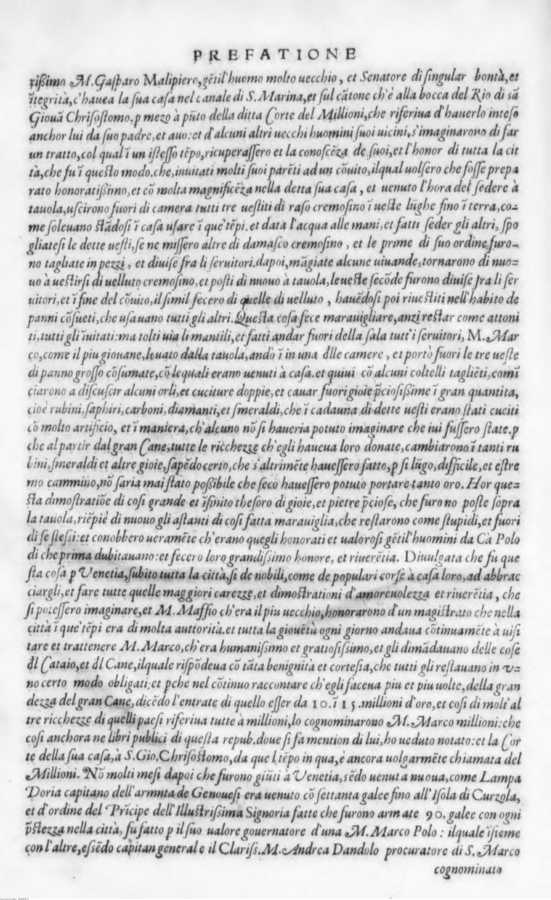 PREFATIONE
rißimo M. Gasparo Malipiero, gẽtil'huemo molto uecchio, et Senatore di singular bontà, et
ĩtegrità, c'hauea la sua casa nel canale di S. Marina, et sul cãtone ch'è alla bocca del Rio di sã
Giouã Chrisostomo, p mezo à pũto della ditta Corte del Millioni, che riferiua d'hauerlo inteso
anchor lui da suo padre, et auo: et d'alcuni altri uecchi huomini suoi uicini, s'imaginarono di far
un tratto, col qual ĩ un istesso tẽpo, ricuperassero et la conoscẽza de suoi, et l'honor di tutta la cit
tà, che fu ĩ questo modo. che, inuitati molti suoi parẽti ad un cõuito, ilqual uolsero che fosse prepa
rato honoratißimo, et cõ molta magnificẽza nella detta sua casa, et uenuto l'hora del sedere à
tauola, uscirono fuori di camera tutti tre uestiti di raso cremosino ĩ ueste lũghe fino ĩ terra, co-
me soleuano stãdosi ĩ casa usare ĩ que' tẽpi. et data l'acqua alle mani, et fatti seder gli altri, spo
gliatesi le dette uesti, se ne missero altre di damasco cremosino, et le prime di suo ordine furo-
no tagliate in pezzi, et diuise fra li seruitori. dapoi, mãgiate alcune uiuande, tornarono di nuo-
uo à uestirsi di uelluto cremosino, et posti di nuouo à tauola, le ueste secõde furono diuise fra li ser
uitori, et ĩ fine del cõuito, il simil fecero di quelle di uelluto, hauẽdosi poi riuestiti nell'habito de
panni cõsueti, che usauano tutti gli altri. Questa cosa fece marauigliare, anzi restar come attoni
ti, tutti gli ĩuitati: ma tolti uia li mantili, et fatti andar fuori della sala tutt'i seruitori, M. Mar
co, come il piu giouane, leuato dalla tauola, andò ĩ in una dlle camere, et portò fuori le tre ueste
di panno grosso cõsumate, cõ lequali erano uenuti à casa. et quiui cõ alcuni coltelli tagliẽti, comĩ
ciarono a discuscir alcuni orli, et cuciture doppie, et cauar fuori gioie p̃ciosißime ĩ gran quantita,
cioè rubini, saphiri, carboni, diamanti, et smeraldi, che ĩ cadauna di dette uesti erano stati cuciti
cõ molto artificio, et ĩ maniera, ch'alcuno nõ si haueria potuto imaginare che iui fussero state. p
che al partir dal gran Cane, tutte le ricchezze ch'egli haueua loro donate, cambiarono ĩ tanti ru
bini, smeraldi et altre gioie, sapẽdo certo, che s'altrimẽte hauessero fatto, p si lũgo, difficile, et estre
mo cammino, nõ saria mai stato poßibile che seco hauessero potuto portare tanto oro. Hor que-
sta dimostratiõe di cosi grande et ĩfinito thesoro di gioie, et pietre p̃ciose, che furono poste sopra
la tauola, riẽpiè di nuouo gli astanti di cosi fatta marauiglia, che restarono come stupidi, et fuori
di se steßi: et conobbero ueramẽte ch'erano quegli honorati et valorosi gẽtil'huomini da Cà Polo
di che prima dubitauano: et fecero loro grandißimo honore, et riuerẽtia. Diuulgata che fu que
sta cosa p Venetia, subito tutta la città, si de nobili, come de populari corse à casa loro, ad abbrac
ciargli, et fare tutte quelle maggiori carezze, et dimostrationi d'amoreuolezza et riuerẽtia, che
si potessero imaginare, et M. Maffio ch'era il piu vecchio, honorarono d'un magistrato che nella
città ĩ que' tẽpi era di molta auttorità. et tutta la giouẽtù ogni giorno andaua cõtinuamẽte à uisi
tare et trattenere M. Marco, ch'era humanißimo et gratiosißimo, et gli dimãdauano delle cose
dl Cataio, et dl Cane, ilquale rispõdeua cõ tãta benignità et cortesia, che tutti gli restauano in v-
no certo modo obligati: et pche nel cõtinuo raccontare ch'egli faceua piu et piu uolte, della gran
dezza del gran Cane, dicẽdo l'entrate di quello esser da 10. ĩ 15. millioni d'oro, et cosi di molt'al
tre ricchezze di quelli paesi riferiua tutte à millioni, lo cognominarono M. Marco millioni: che
cosi anchora ne libri publici di questa repub. doue si fa mention di lui, ho ueduto notato: et la Cor
te della sua casa, à S. Gio. Chrisostomo, da que l tẽpo in qua, è ancora uolgarmẽte chiamata del
Millioni. Nõ molti mesi dapoi che furono giũti à Venetia, sẽdo uenuta nuoua, come Lampa
Doria capitano dell'armata de Genouesi era uenuto cõ settanta galee fino all'Isola di Curzola,
et d'ordine del Prĩcipe dell'Illustrißima Signoria fatte che furono armate 90. galee con ogni
p̃stezza nella città, fu fatto p il suo valore gouernatore d'una M. Marco Polo: ilquale ĩsieme
con l'altre, essẽdo capitan generale il Clariss. M. Andrea Dandolo procuratore di S. Marco
cognominato